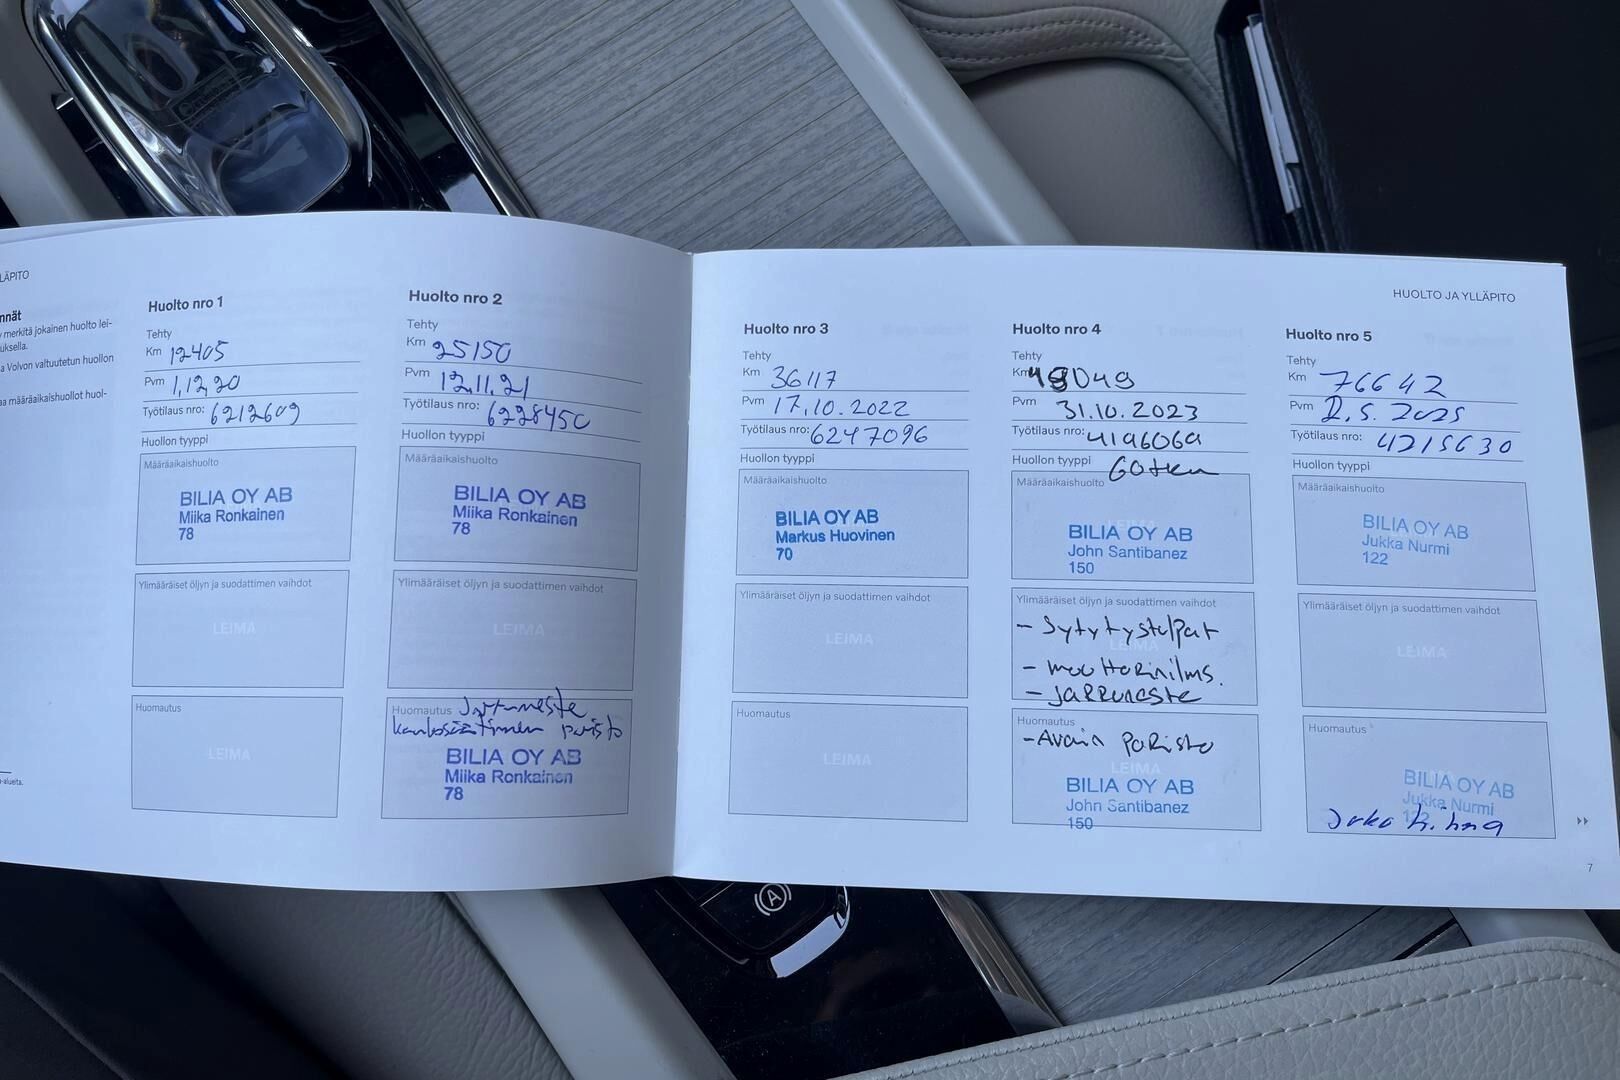 LÄPITO
nnät
merkitä jokainen huolto lei-
uksella.
a Volvon valtuutetun huollon
aa määräaikaishuollot huol-
-alueita.
Huolto nro 1
Tehty
Km 12405
Pvm 1.12.20
Työtilaus nro: 6212609
Huollon tyyppi
Määräaikaishuolto
BILIA OY AB
Miika Ronkainen
78
Ylimääräiset öljyn ja suodattimen vaihdot
LEIMA
Huomautus
LEIMA
Huolto nro 2
Tehty
Km 25150
Pvm 12.11.21
Työtilaus nro: 6228450
Huollon tyyppi
Määräaikaishuolto
BILIA OY AB
Miika Ronkainen
78
Ylimääräiset öljyn ja suodattimen vaihdot
LEIMA
Huomautus Jarruneste
kaukosäätimen paristo
BILIA OY AB
Miika Ronkainen
78
HUOLTO JA YLLÄPITO
Huolto nro 3
Tehty
Km 36117
Pvm 17.10.2022
Työtilaus nro: 6247096
Huollon tyyppi
Määräaikaishuolto
BILIA OY AB
Markus Huovinen
70
Ylimääräiset öljyn ja suodattimen vaihdot
LEIMA
Huomautus
LEIMA
Huolto nro 4
Tehty
Km 49049
Pvm 31.10.2023
Työtilaus nro: 4196069
Huollon tyyppi 60tkm
Määräaikaishuolto
LEIMA
BILIA OY AB
John Santibanez
150
Ylimääräiset öljyn ja suodattimen vaihdot
- Sytytystulpat
LEIMA
- moottorinilms.
- jarruneste
Huomautus
- Avain paristo
LEIMA
BILIA OY AB
John Santibanez
150
Huolto nro 5
Tehty
Km 76642
Pvm 2.5.2025
Työtilaus nro: 4215630
Huollon tyyppi
Määräaikaishuolto
BILIA OY AB
Jukka Nurmi
122
Ylimääräiset öljyn ja suodattimen vaihdot
LEIMA
Huomautus
BILIA OY AB
Jukka Nurmi
122
7